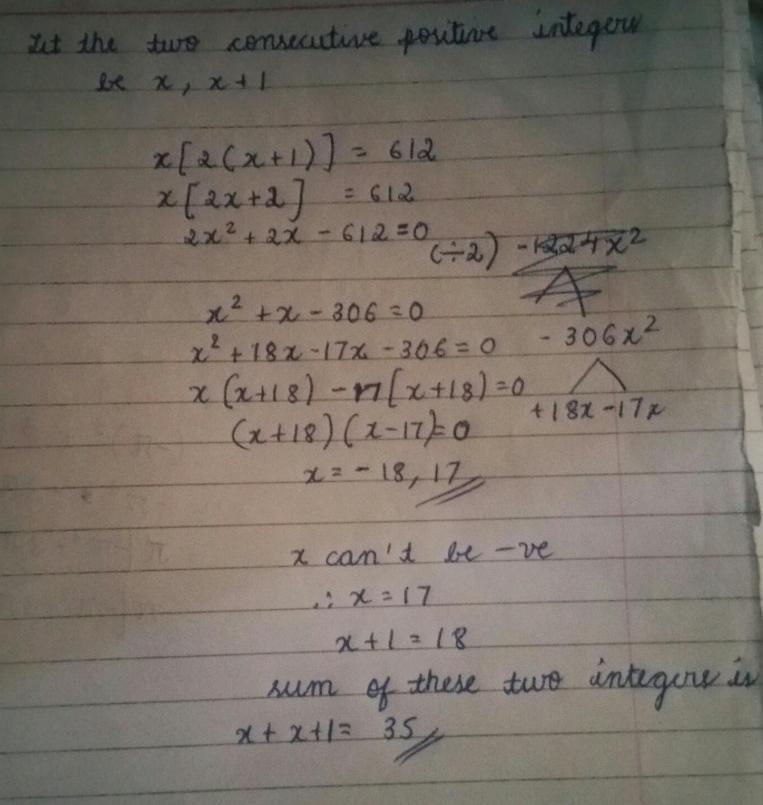 Let the two consecutive positive integers
be x, x+1
x[2(x+1)] = 612
x[2x+2] = 612
2x² + 2x - 612 = 0
(÷2) -1224x²
x² + x - 306 = 0
- 306x²
x² + 18x - 17x - 306 = 0
x(x+18) - 17(x+18) = 0
+18x -17x
(x+18)(x-17) = 0
x = - 18, 17
x can't be -ve
∴ x = 17
x+1 = 18
sum of these two integers is
x + x+1 = 35